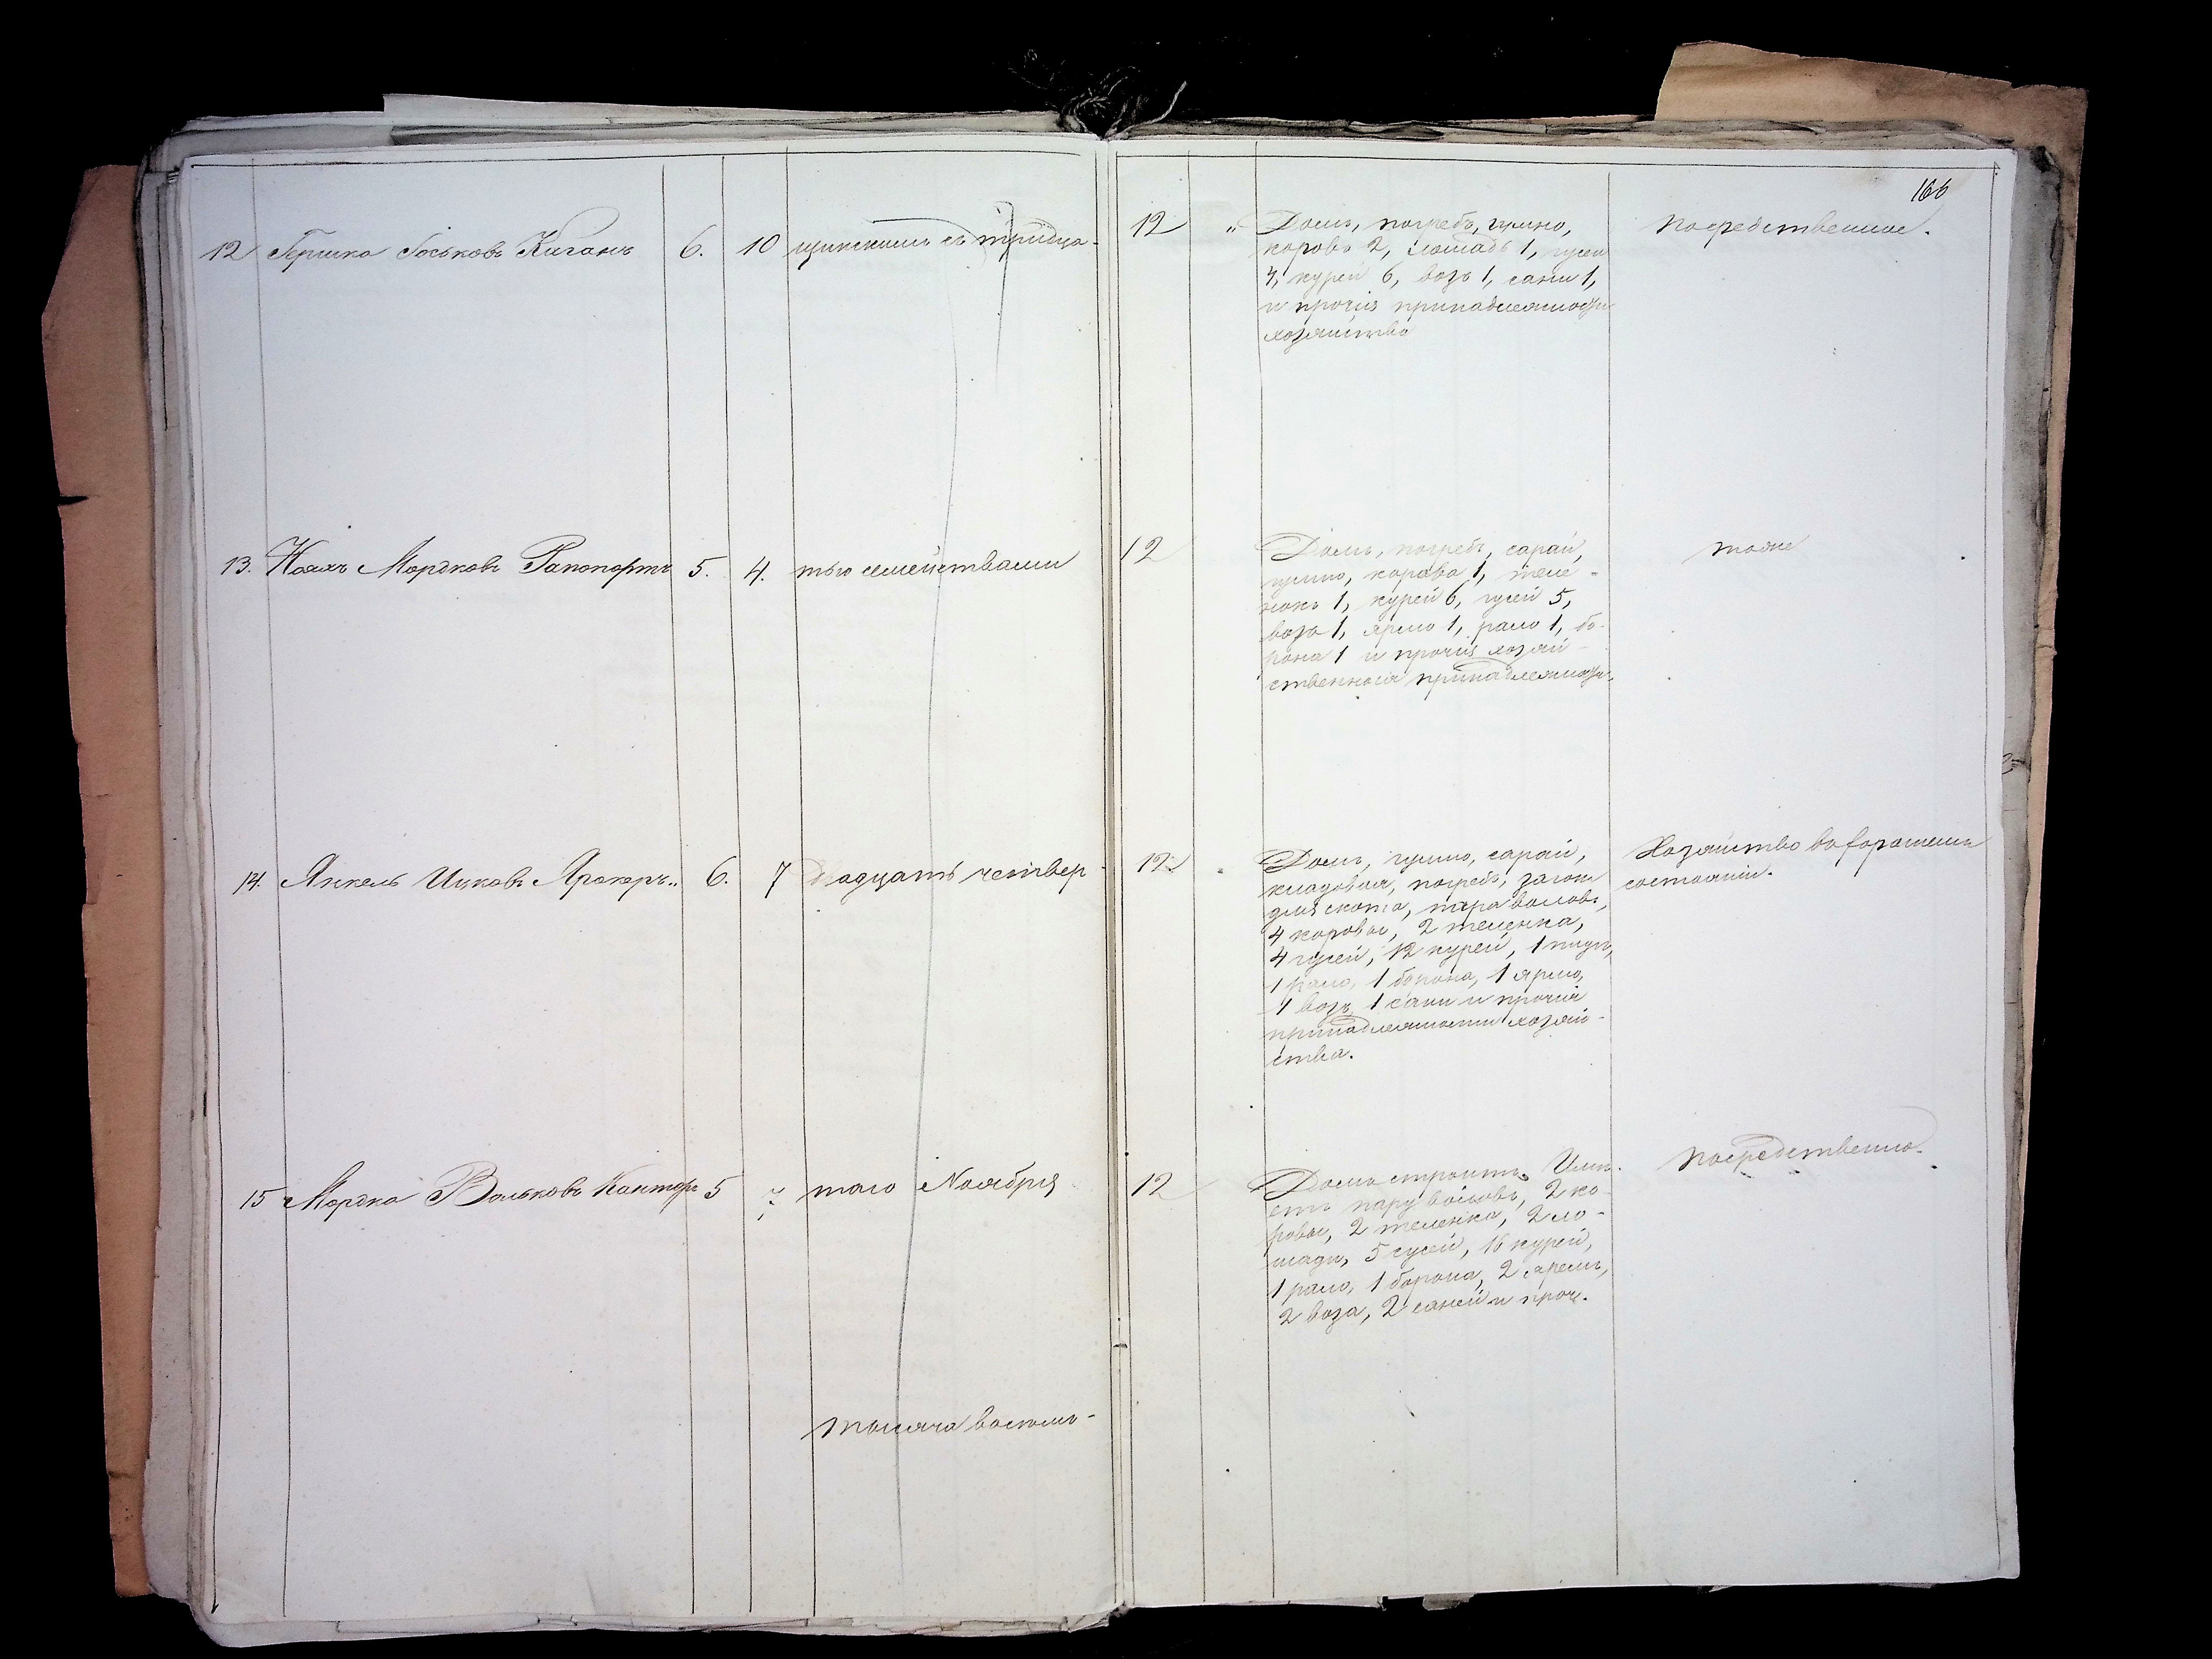 166
12 Гершко Госьковъ Каганъ 6. 10 щинскимъ съ тридца-
12 „ Домъ, погребъ, гумно,
коровъ 2, лошадь 1, гусей
4, курей 6, возъ 1, сани 1,
и прочія принадлежности
хозяйства
посредственное.
13. Мордковъ Рапопортъ 5. 4. тью семействами
12 Домъ, погребъ, сарай,
гумно, корова 1, теле-
нокъ 1, курей 6, гусей 5,
возъ 1, ярмо 1, рало 1, бо-
рона 1 и прочія хозяй-
ственныя принадлежности.
тоже
14. Янкель Ицковъ 6. 7 двадцать четвер-
12 Домъ, гумно, сарай,
кладовая, погребъ, загонъ
для скота, пара воловъ,
4 коровы, 2 теленка,
4 гусей, 12 курей, 1 плугъ,
1 рало, 1 борона, 1 ярмо,
1 возъ, 1 сани и прочія
принадлежности хозяй-
ства.
Хозяйство въ хорошемъ
состояніи.
15 Мордко Вольковъ Канторъ 5 7 таго Ноября
12 Домъ строитъ. Имѣ-
етъ пару воловъ, 2 ко-
ровы, 2 теленка, 2 ло-
шади, 5 гусей, 16 курей,
1 рало, 1 борона, 2 яремъ,
2 воза, 2 саней и проч.
посредственно.
тысяча восемь-